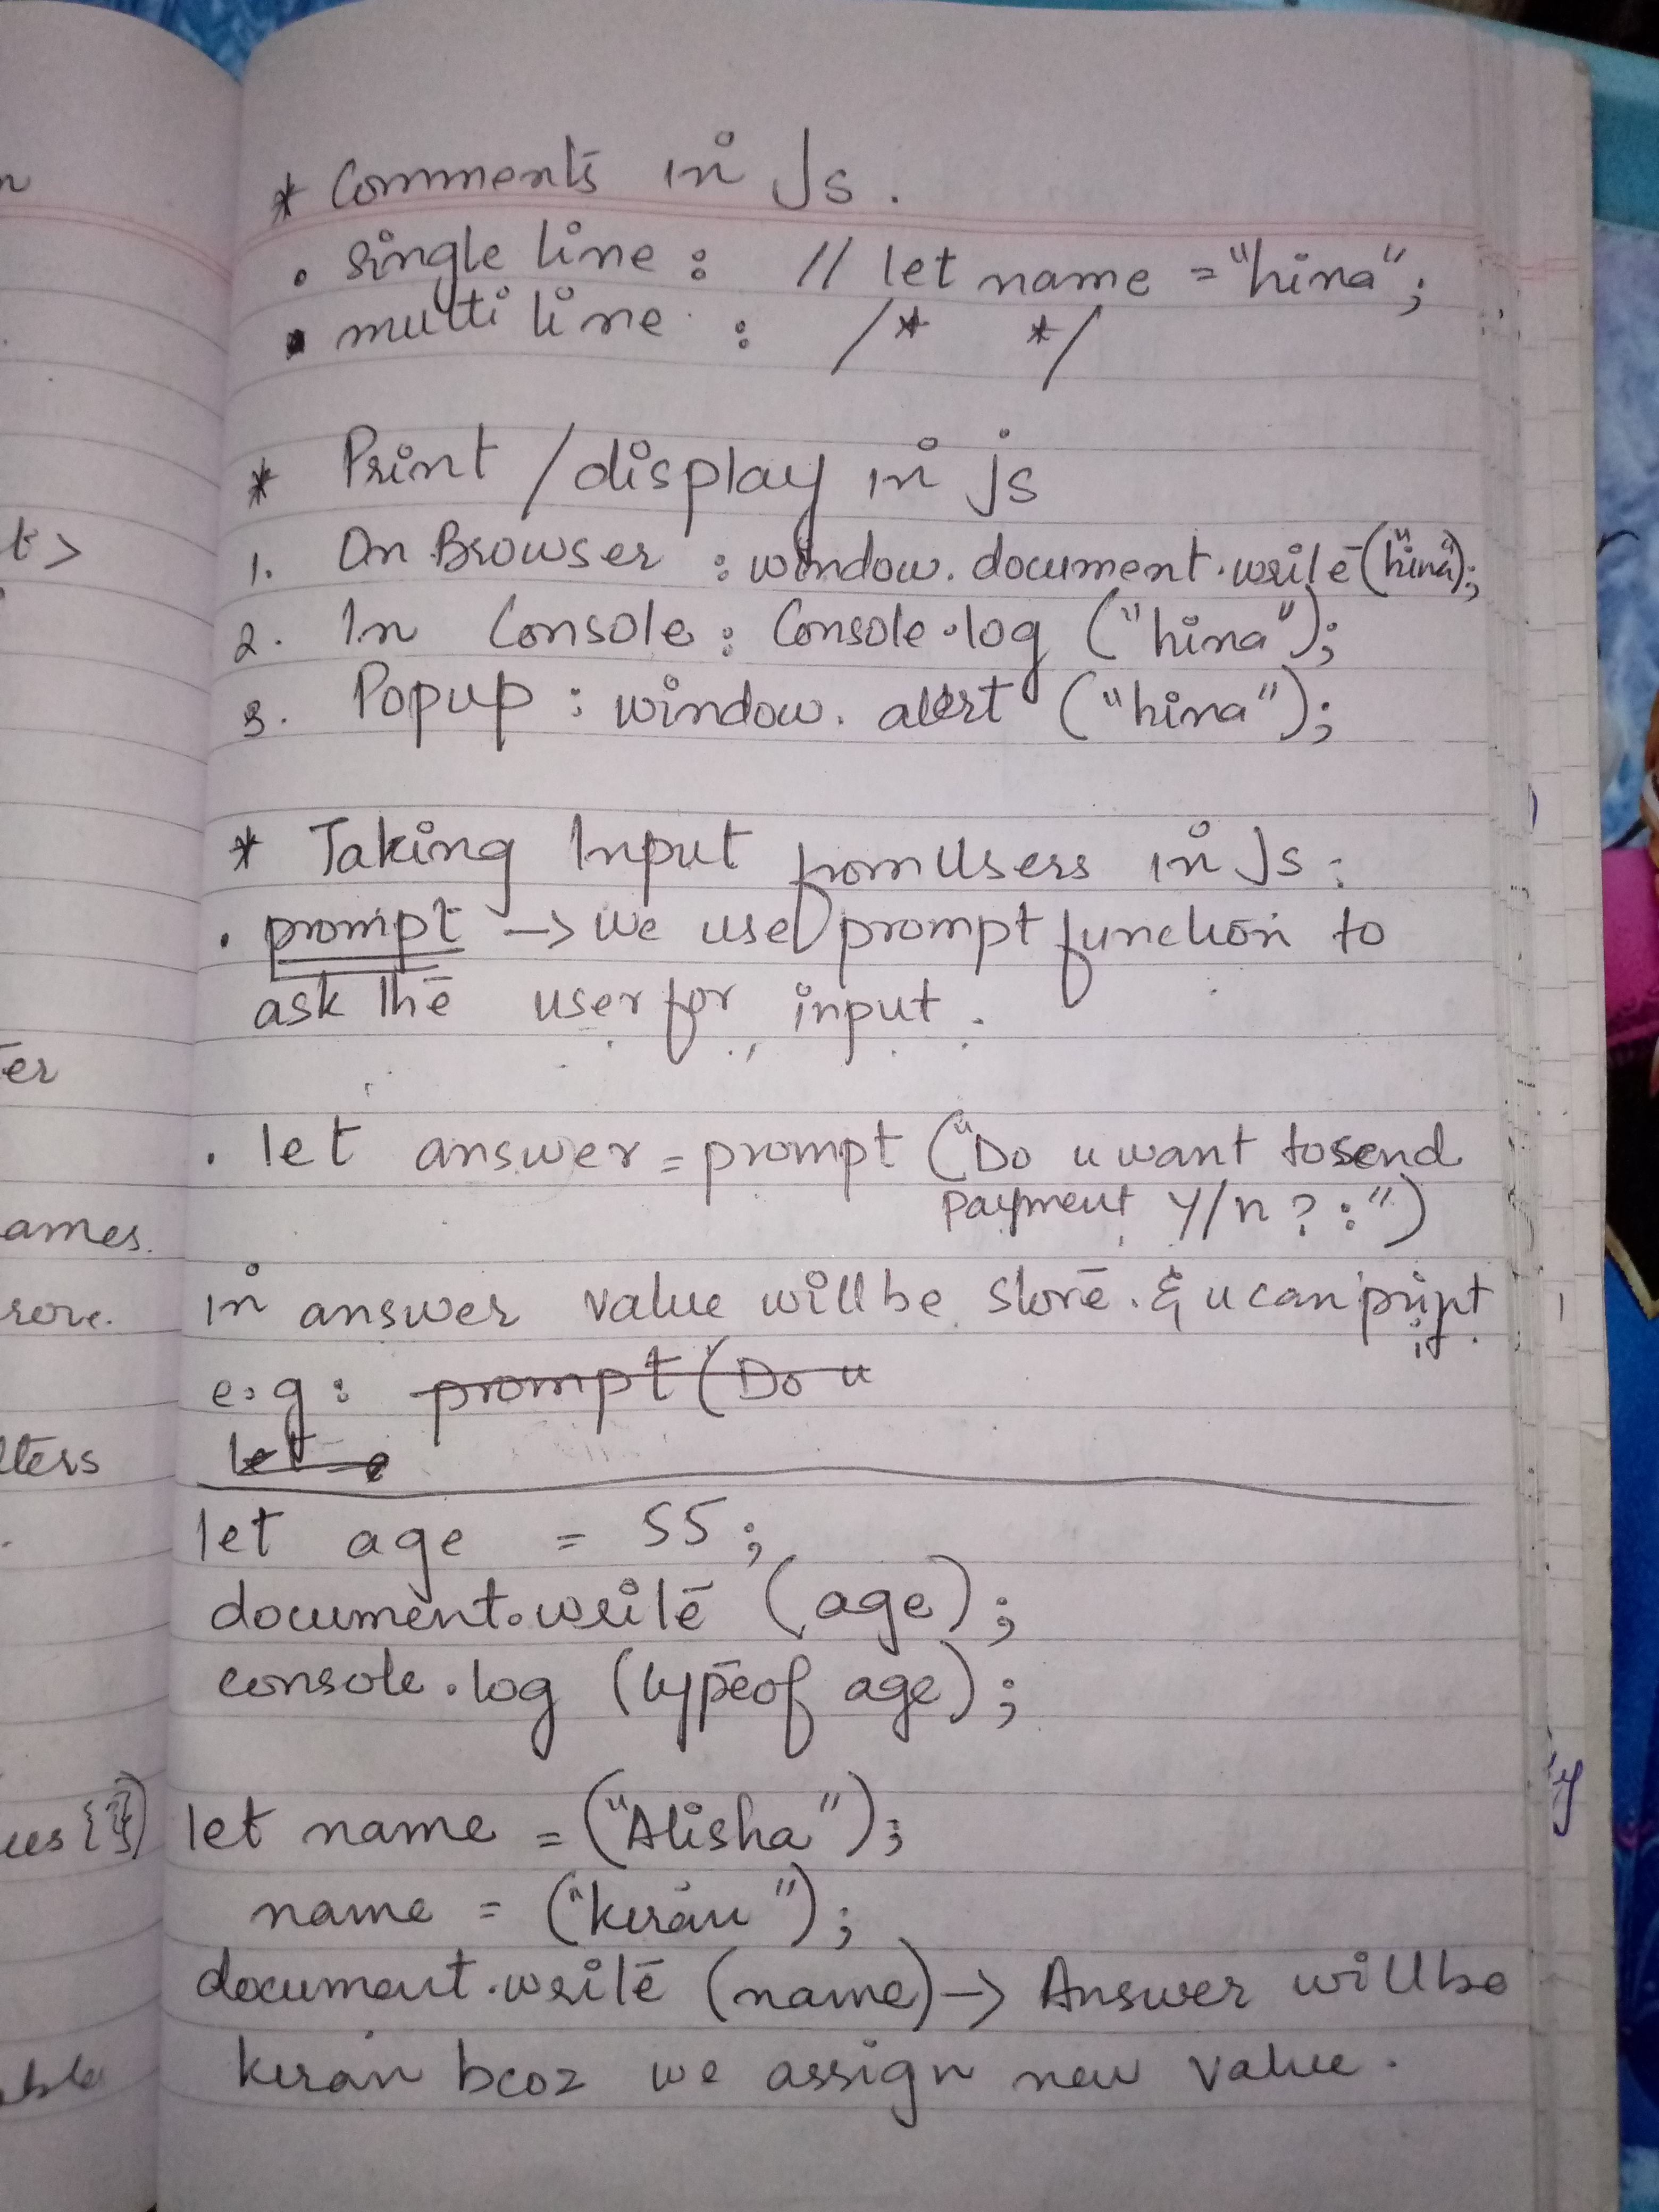 * Comments in Js.
. single line : // let name = "hina";
. multi line : /* */
* Print / display in js
1. On Browser : window.document.write("hina");
2. In Console : Console.log ("hina");
3. Popup : window.alert ("hina");
* Taking Input from Users in Js :
. prompt -> We use prompt function to
ask the user for input.
. let answer = prompt ("Do u want to send
Payment Y/n ? :")
in answer value will be store. & u can print
it.
e.g : prompt ( Do u
let
let age = 55 ;
document.write (age) ;
console.log (typeof age) ;
let name = ("Alisha");
name = ("kiran");
document.write (name) -> Answer will be
kiran bcoz we assign new value.
n
t>
er
ames.
tters